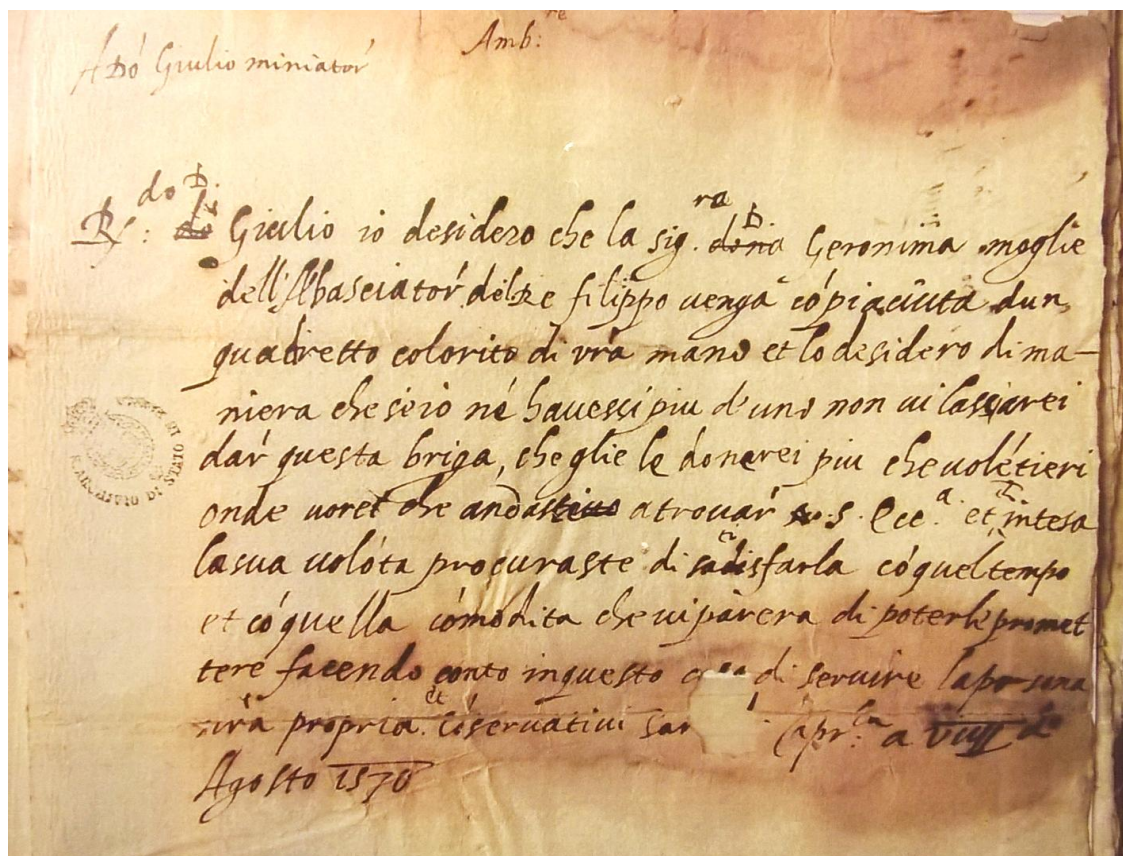 A Dó Giulio miniatór
Amb:re
R.do D. Giulio io desidero che la sig.ra D. Geronima moglie
dell'Ábasciatór del Re filippo venga cópiaciuta d un
quadretto colorito di vrã mano et lo desidero di ma-
niera che se io né havessi piu d'uno non vi lasciarei
dár questa briga, che glie le donerei piu che volétieri
onde vorei che andaste a trovár S. Ecc.a et intesa
la sua volótà procuraste di sadisfarla có quel tempo
et có quella cómodita che vi parera di poterle promet
tere facendo conto in questo di servire la persona
vrã propria. et cóservativi a VIIII di
Agosto 1570
R. ARCHIVIO DI STATO